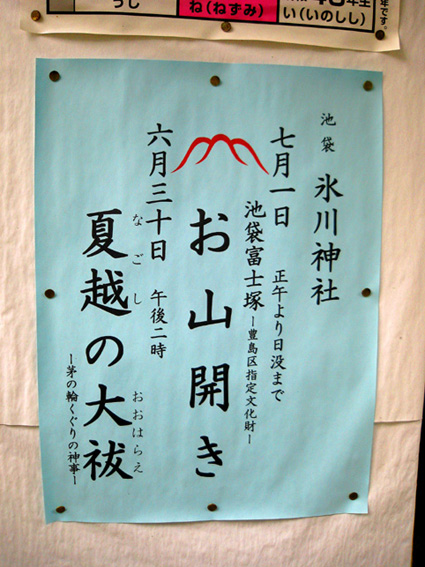 うし
ね(ねずみ)
い(いのしし)
年生
年です。
池袋 氷川神社
七月一日 正午より日没まで
池袋富士塚ー豊島区指定文化財ー
お山開き
六月三十日 午後二時
夏越の大祓
なごし おおはらえ
ー茅の輪くぐりの神事ー